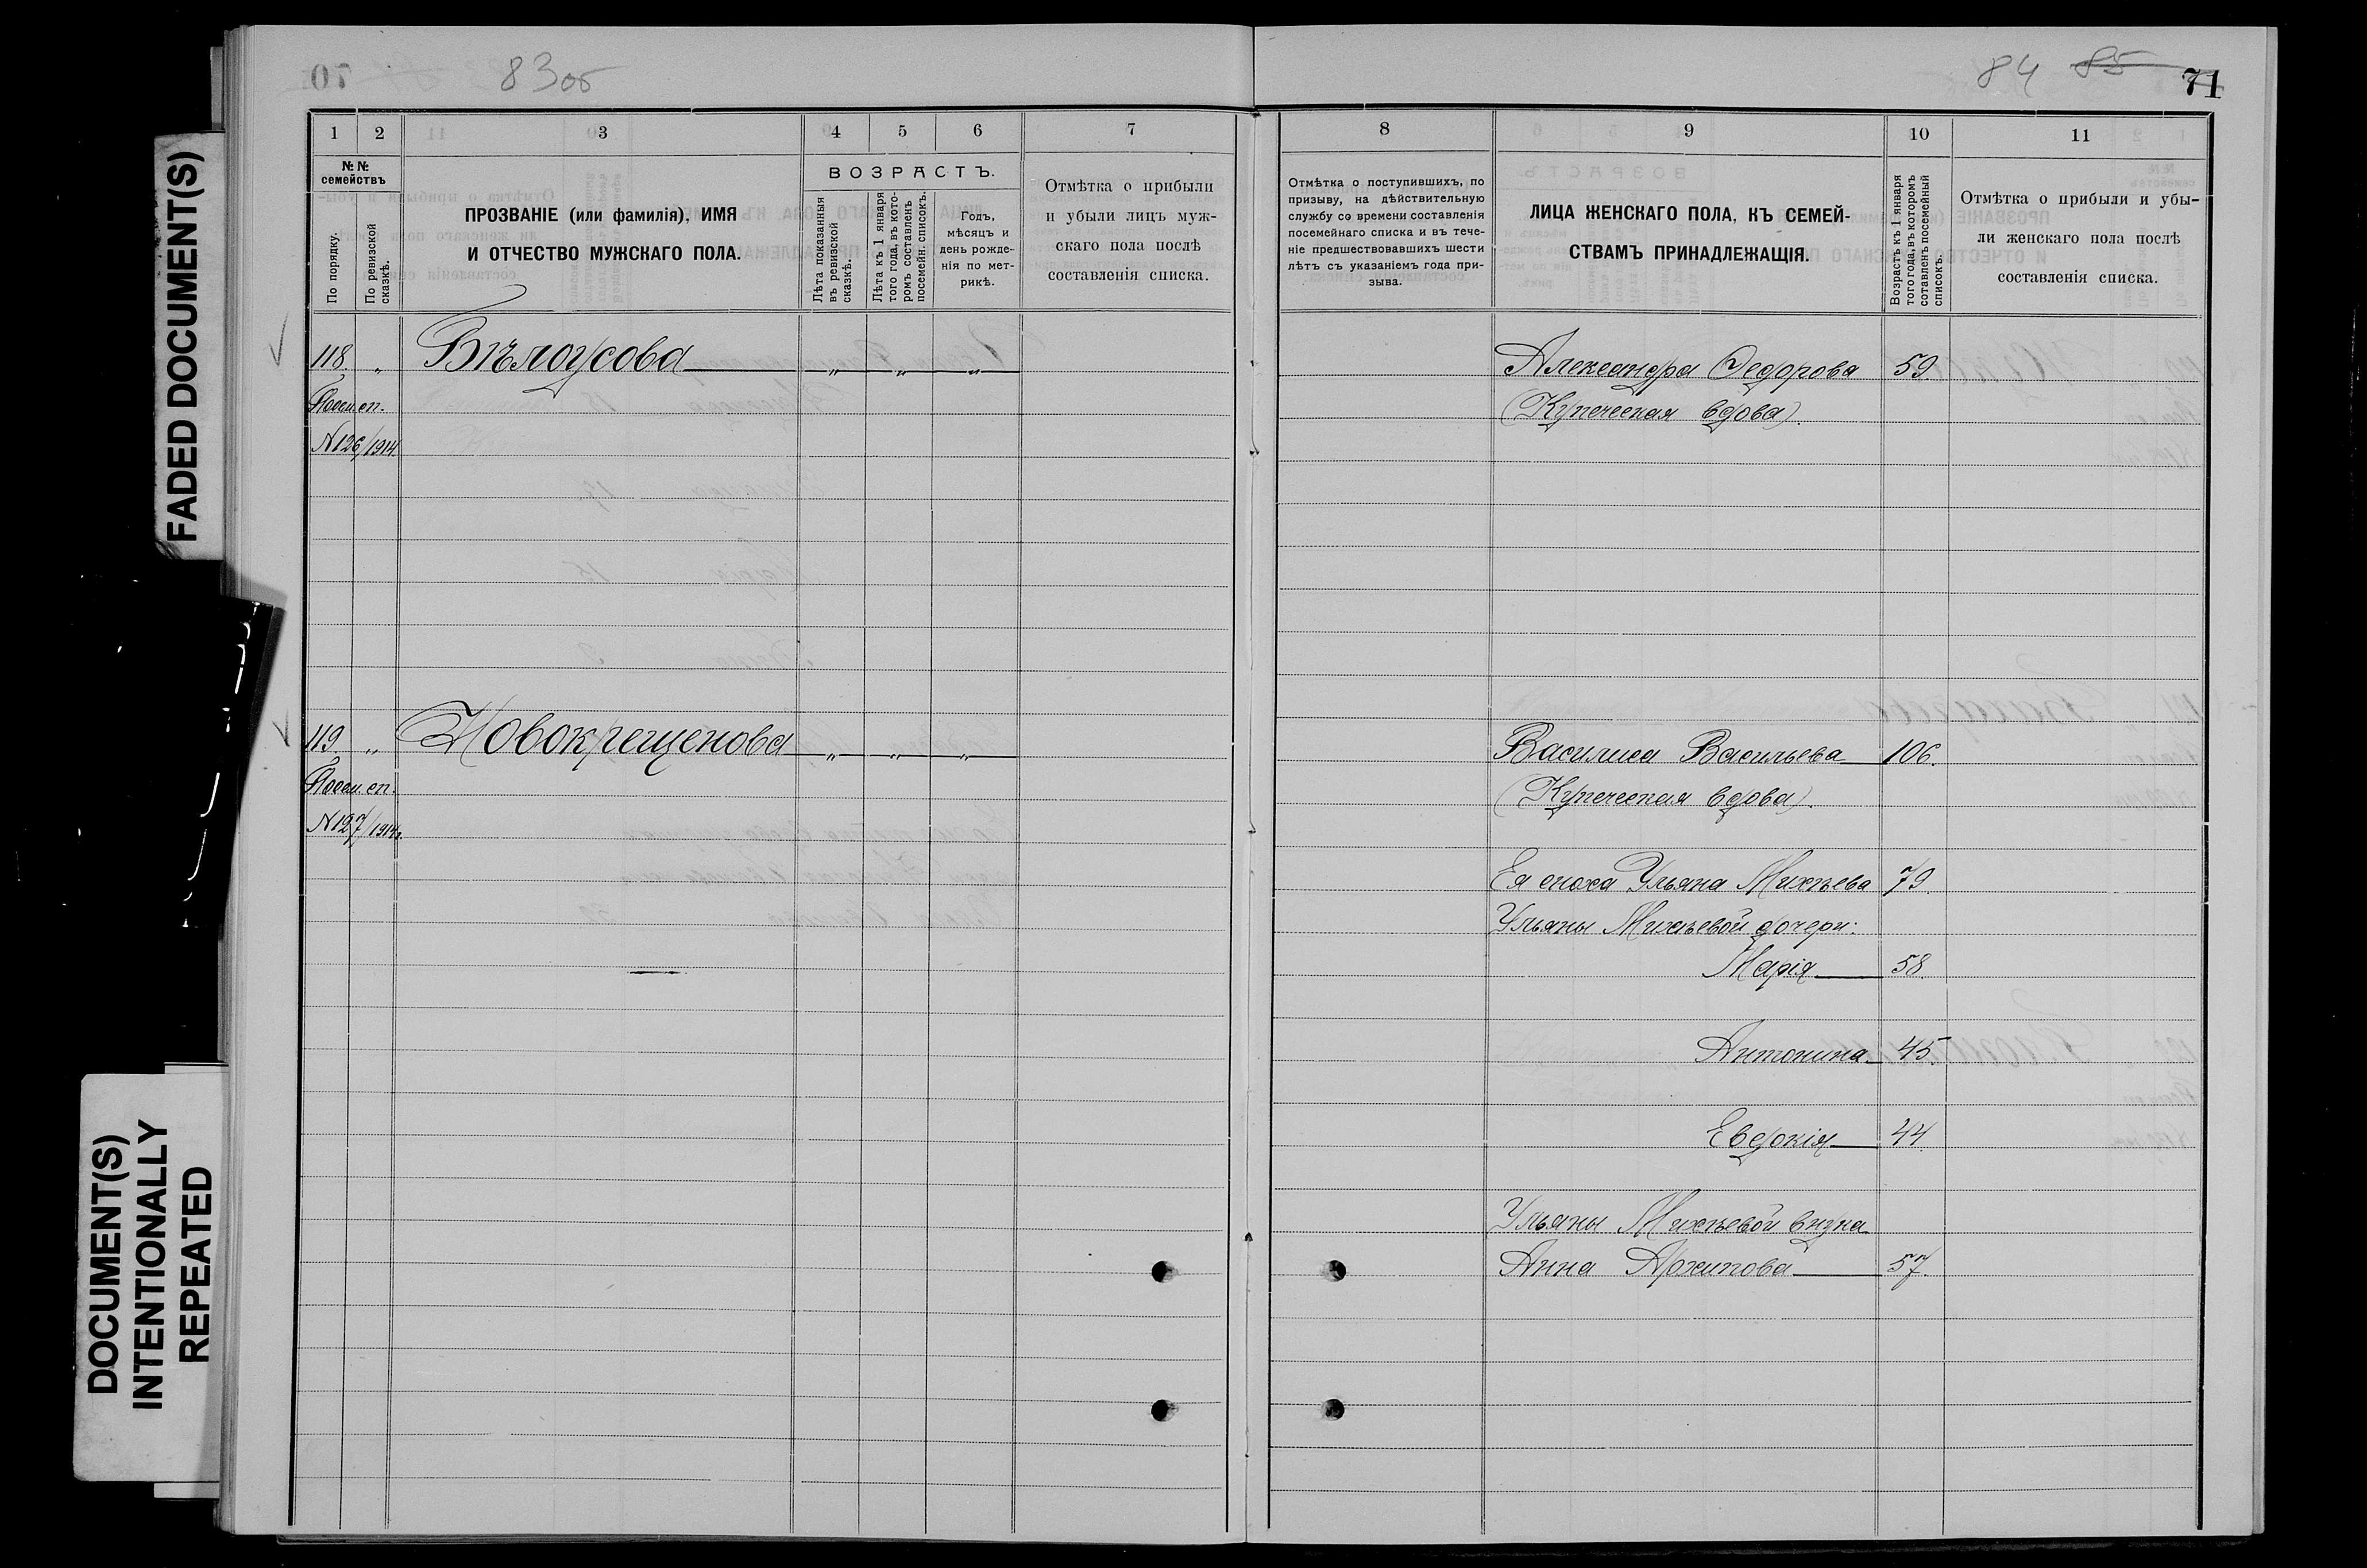 FADED DOCUMENT(S)
DOCUMENT(S)
INTENTIONALLY
REPEATED
83об
1 2 3 4 5 6 7
№№
семействъ
По порядку.
По ревизской
сказкѣ.
ПРОЗВАНІЕ (или фамилія), ИМЯ
И ОТЧЕСТВО МУЖСКАГО ПОЛА.
ВОЗРАСТЪ.
Лѣта показанныя
въ ревизской
сказкѣ.
Лѣта къ 1 января
того года, въ кото-
ромъ составленъ
посемейн. списокъ.
Годъ,
мѣсяцъ и
день рожде-
нія по мет-
рикѣ.
Отмѣтка о прибыли
и убыли лицъ муж-
скаго пола послѣ
составленія списка.
118. „ Бѣлоусова „ „ „
Посем. сп.
№126/1914.
119. „ Новокрещенова „ „ „
Посем. сп.
№127/1914г.
84 85 71
8 9 10 11
Отмѣтка о поступившихъ, по
призыву, на дѣйствительную
службу со времени составленія
посемейнаго списка и въ тече-
ніе предшествовавшихъ шести
лѣтъ съ указаніемъ года при-
зыва.
ЛИЦА ЖЕНСКАГО ПОЛА, КЪ СЕМЕЙ-
СТВАМЪ ПРИНАДЛЕЖАЩІЯ.
Возрастъ къ 1 января
того года, въ которомъ
сотавленъ посемейный
списокъ.
Отмѣтка о прибыли и убы-
ли женскаго пола послѣ
составленія списка.
Александра Федорова 59.
(Купеческая вдова).
Василиса Васильева 106.
(Купеческая вдова).
Ея сноха Ульяна Михѣева 79.
Ульяны Михѣевой дочери:
Марія 58.
Антонина 45.
Евдокія 44.
Ульяны Михѣевой внука
Анна Архипова 57.